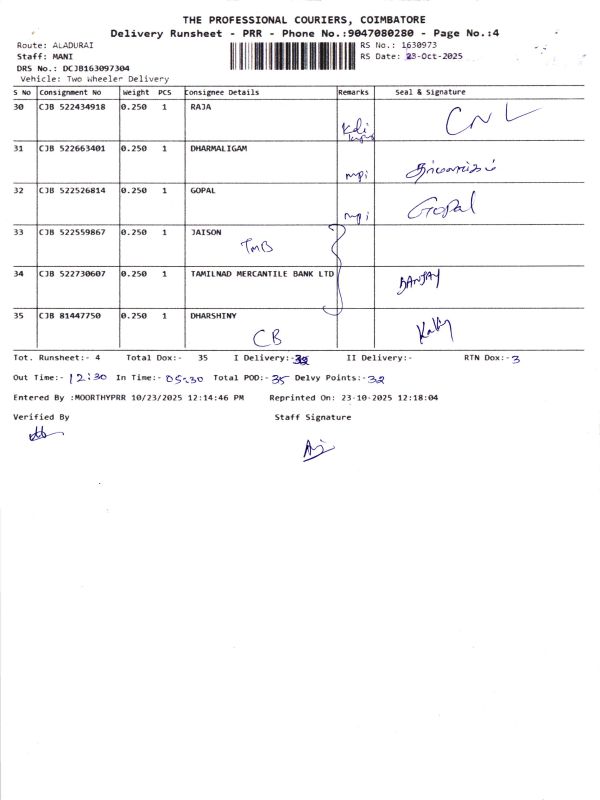 THE PROFESSIONAL COURIERS, COIMBATORE
Delivery Runsheet - PRR - Phone No.:9047080280 - Page No.:4
Route: ALADURAI RS No.: 1630973
Staff: MANI RS Date: 23-Oct-2025
DRS No.: DCJB163097304
Vehicle: Two Wheeler Delivery
S No Consignment No Weight PCS Consignee Details Remarks Seal & Signature
30 CJB 522434918 0.250 1 RAJA
CNL
31 CJB 522663401 0.250 1 DHARMALIGAM
mpi தர்மலிங்கம்
32 CJB 522526814 0.250 1 GOPAL
mpi Gopal
33 CJB 522559867 0.250 1 JAISON
TMB
34 CJB 522730607 0.250 1 TAMILNAD MERCANTILE BANK LTD
SANJAY
35 CJB 81447750 0.250 1 DHARSHINY
CB
Tot. Runsheet:- 4 Total Dox:- 35 I Delivery:-32 II Delivery:- RTN Dox:-3
Out Time:- 12:30 In Time:- 05-30 Total POD:- 35 Delvy Points:- 32
Entered By :MOORTHYPRR 10/23/2025 12:14:46 PM Reprinted On: 23-10-2025 12:18:04
Verified By Staff Signature